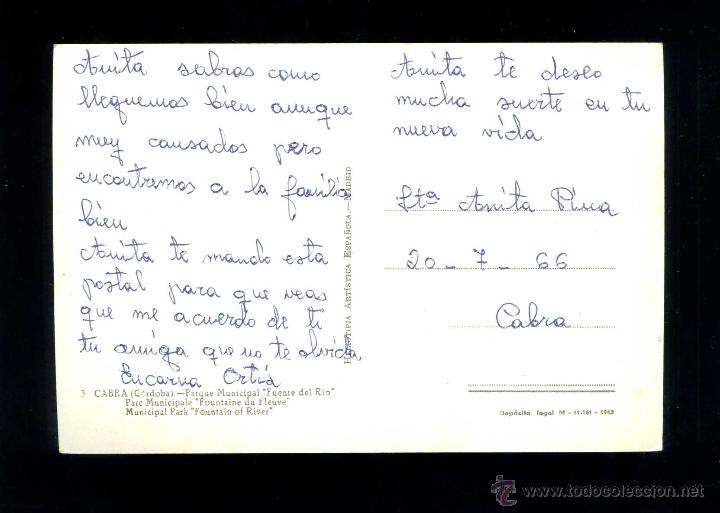 Anita sabras como
lleguemos bien aunque
muy cansados pero
encontremos a la familia
bien
Anita te mando esta
postal para que veas
que me acuerdo de ti
tu amiga que no te olvida,
Encarna Ortiz
3 CABRA (Córdoba).—Parque Municipal "Fuente del Río"
Parc Municipale "Fountaine du Fleuve"
Municipal Park "Fountain of River"
HELIOTIPIA ARTÍSTICA ESPAÑOLA.—MADRID
Anita te deseo
mucha suerte en tu
nueva vida
Stª Anita Pina
20 - 7 - 66
Cabra
Depósito legal M - 11-161 - 1963
www.todocoleccion.net